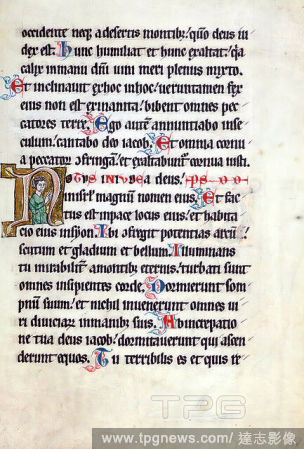 occidente neqz adesertis montibz. qm̄ deus iu
dex est. Hunc humiliat et hunc exaltat: qa
calix inmanu dn̄i uini meri plenus mixto.
Et inclinauit exhoc inhoc: ueruntamen fex
eius non est exinanita: bibent omnes pec
catores terre. Ego autē annuntiabo inse
culum: cantabo dō iacob. Et omnia cornu
a peccatorꝫ cōfringā: et exaltabunt̄ cornua iusti.
Notus iniudea deus: 
inisrl̄ magnum nomen eius. Et fac
tus est inpace locus eius: et habita
cio eius insyon. Ibi cōfregit potentias arcuū:
scutum et gladium et bellum. Illuminans
tu mirabilit̄ amontibz eternis: turbati sunt
omnes insipientes corde. Dormierunt som
pnū suum: et nichil inuenerunt omnes ui
ri diuiciarꝫ inmanibz suis. Ab increpatio
ne tua deus iacob: dormitauerunt qui ascen
derunt equos. Tu terribilis es et quis re
TPG
www.tpgnews.com/ 達志影像